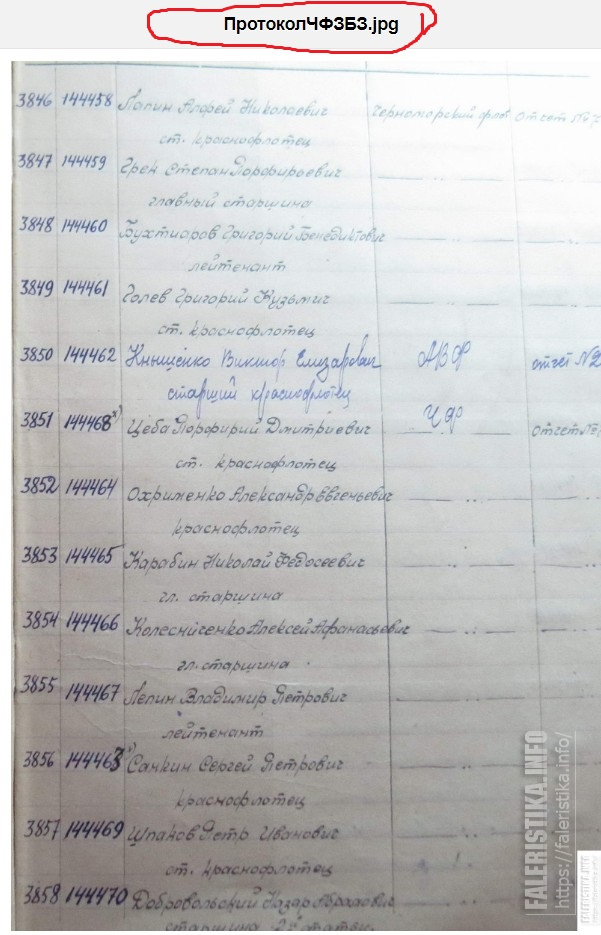 ПротоколЧФЗБЗ.jpg
3846 144458 Лапин Андрей Николаевич Черноморский флот отчет №
ст. краснофлотец
3847 144459 Грек Степан Порфирьевич
главный старшина
3848 144460 Бухтиаров Григорий Бенедиктович
лейтенант
3849 144461 Голев Григорий Кузьмич
ст. краснофлотец
3850 144462 Кнышенко Виктор Елизарович АВФ отчет №2
старший краснофлотец
3851 144468 х) Цеба Порфирий Дмитриевич ЧФ отчет №
ст. краснофлотец
3852 144464 Охрименко Александр Евгеньевич
краснофлотец
3853 144465 Карабин Николай Федосеевич
гл. старшина
3854 144466 Колесніченко Алексей Афанасьевич
гл. старшина
3855 144467 Лепин Владимир Петрович
лейтенант
3856 144463 х) Санкин Сергей Петрович
краснофлотец
3857 144469 Шпаков Петр Иванович
ст. краснофлотец
3858 144470 Добровольский Назар Абрамович
старшина 2й статьи
FALERISTIKA.INFO
https://faleristika.info/